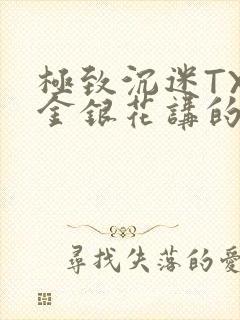 極致沉迷TX
金銀花講的
尋找失落的愛